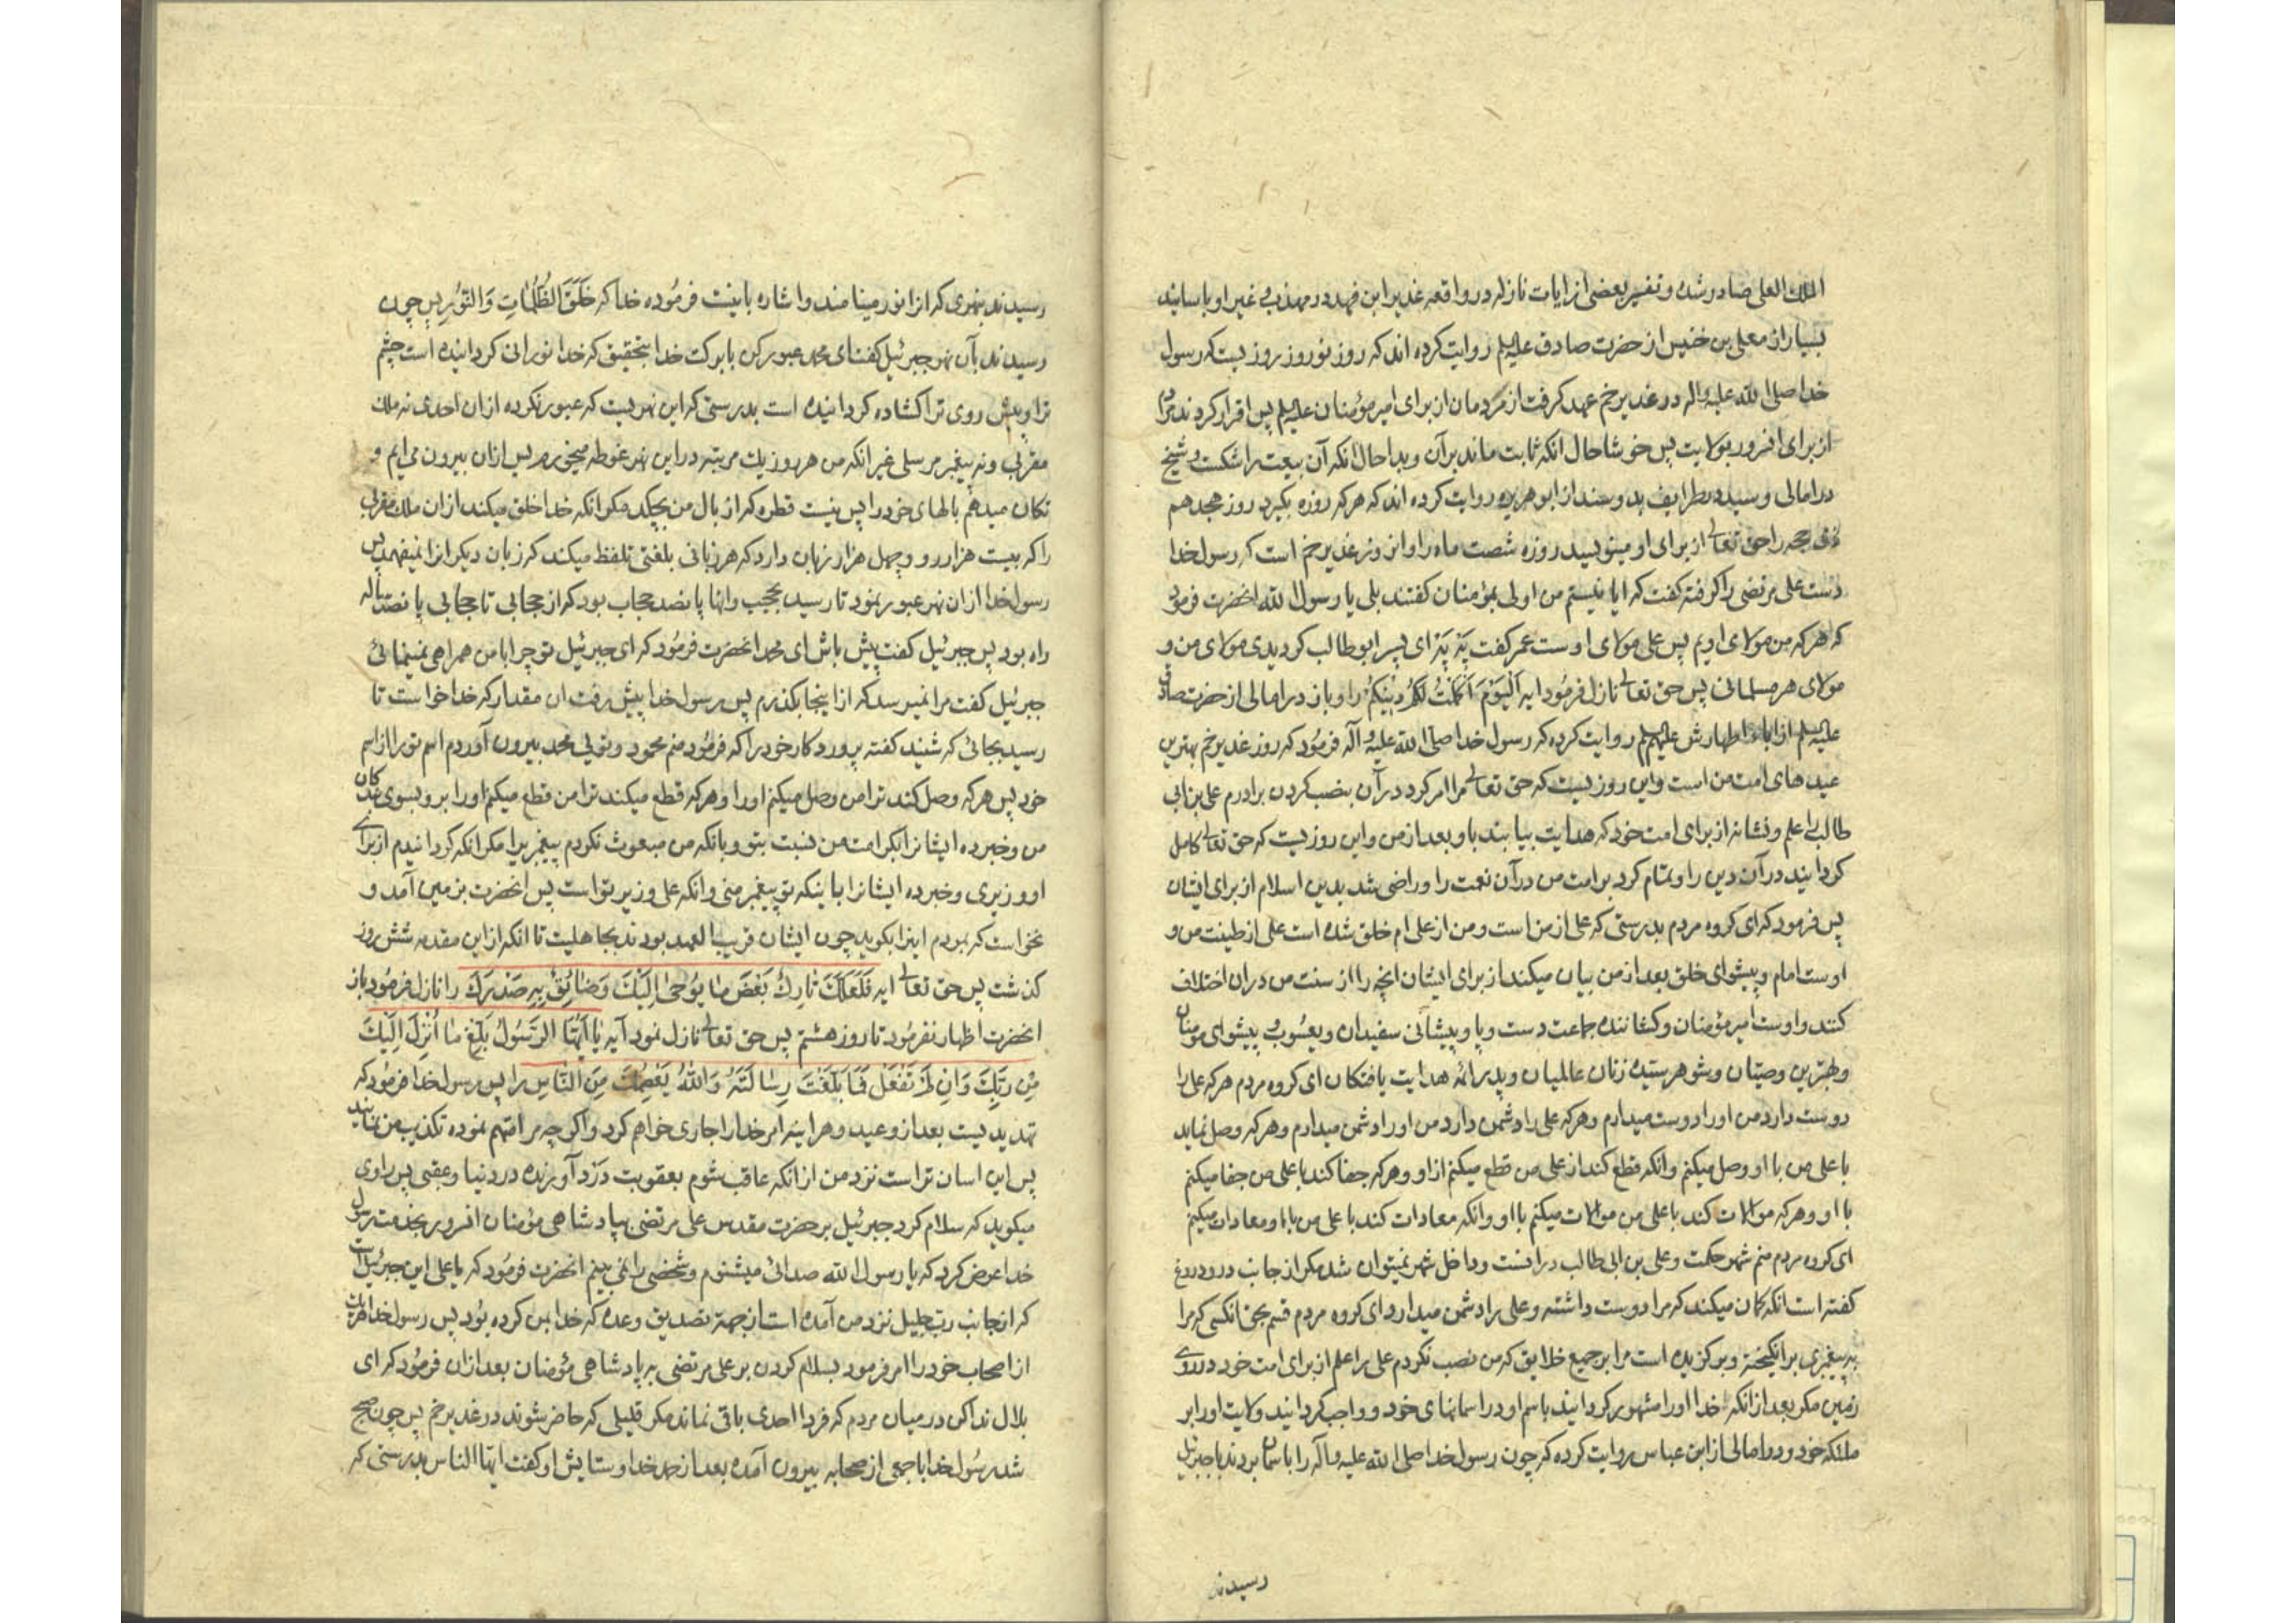 الملك العلی صادر شده و تفسیر بعضی از ایات نازله در واقعه غدیر ابن فهد در مهذب و غیر او باسانید
بسیار از معلی بن خنیس از حضرت صادق علیه‌السلم روایت کرده اند که روز نوروز روزیست که رسول
خدا صلی الله علیه واله در غدیر خم عهد گرفت از مردمان از برای امیر مؤمنان علیه‌السلم پس اقرار کردند
از برای افرور بولایت پس خوشا حال انکه ثابت ماند بر آن و بدا حال انکه آن بیعت را شکست و شیخ
در امالی و سید در طرایف بدو سند از ابو هریره روایت کرده اند که هر که روزه بگیرد روز هجدهم
ذی حجه را حق تعالی از برای او مینویسد روزه شصت ماه را و این روز غدیر خم است که رسول خدا
دست علی مرتضی را گرفته گفت که ایا نیستم من اولی بمؤمنان گفتند بلی یا رسول الله انحضرت فرمود
که هر که من مولای اویم پس علی مولای اوست عمر گفت بَهْ بَهْ ای پسر ابو طالب گردیدی مولای من و
مولای هر مسلمانی پس حق تعالی نازل فرمود ایه اَلْیَوْمَ اَکْمَلْتُ لَکُمْ دِیْنَکُمْ را و باز در امالی از حضرت صادق
علیه‌السلم از اباء اطهارش علیهم‌السلم روایت کرده که رسول خدا صلی الله علیه و آله فرمود که روز غدیر خم بهترین
عید های امت من است و این روزیست که حق تعالی مرا امر کرد در آن بنصب کردن برادرم علی بن ابی
طالب را علم و نشانه از برای امت خود که هدایت بیابند باو بعد از من و این روزیست که حق تعالی کامل
گردانید در آن دین را و تمام کرد بر امت من در آن نعمت را و راضی شد بدین اسلام از برای ایشان
پس فرمود که ای گروه مردم بدرستی که علی از من است و من از علی ام خلق شده است علی از طینت من و
اوست امام و پیشوای خلق بعد از من بیان میکند از برای ایشان انچه را از سنت من در ان اختلاف
کنند و اوست امیر مؤمنان و کشاننده جماعت دست و پا و پیشانی سفیدان و یعسُوب و پیشوای مومنان
و بهترین وصیّان و شوهر سیّده زنان عالمیان و پدر ائمه هدایت یافتگان ای گروه مردم هر که علی را
دوست دارد من او را دوست میدارم و هر که علی را دشمن دارد من او را دشمن میدارم و هر که وصل نماید
با علی من با او وصل میکنم و انکه قطع کند از علی من قطع میکنم از او و هر که جفا کند با علی من جفا میکنم
با او و هر که موالات کند با علی من موالات میکنم با او و انکه معادات کند با علی من با او معادات میکنم
ای گروه مردم منم شهر حکمت و علی بن ابی طالب در انست و داخل شهر نمیتوان شد مگر از جانب در و دروغ
گفته است انکه گمان میکند که مرا دوست داشته و علی را دشمن میدارد ای گروه مردم قسم بحق انکسی که مرا
به پیغمبری برانگیخته و برگزیده است مرا بر جمیع خلایق که من نصب نکردم علی را علم از برای امت خود در روی
زمین مگر بعد از انکه خدا او را مشهور گردانید باسم او در اسمانهای خود و واجب گردانید ولایت او را بر
ملئکه خود و در امالی از ابن عباس روایت کرده که چون رسول خدا صلی الله علیه و اله را باسمان بردند با جبرئیل
رسیدند
رسیدند بنهری که انرا نور مینامند و اشاره باینست فرموده خدا که خَلَقَ الظُّلُمٰاتِ وَ النُّوْرَ پس چون
رسیدند بآن نهر جبرئیل گفت ای محمد عبور کن با برکت خدا بتحقیق که خدا نورانی گردانیده است چشم
ترا و پیش روی ترا گشاده گردانیده است بدرستی که این نهریست که عبور نکرده از ان احدی نه ملك
مقربی و نه پیغمبر مرسلی غیر انکه من هر روز یك مرتبه در این نهر غوطه میخورم پس از ان بیرون می ایم و
تکان میدهم بالهای خود را پس نیست قطره که از بال من بچکد مگر انکه خدا خلق میکند از ان ملك مقربی
را که بیست هزار رو و چهل هزار زبان دارد که هر زبانی بلغتی تلفظ میکند که زبان دیگر انرا نمیفهمد پس
رسول خدا از ان نهر عبور نمود تا رسید بحجب و انها پانصد حجاب بود که از حجابی تا حجابی پانصد ساله
راه بود پس جبرئیل گفت پیش باش ای محمد انحضرت فرمود که ای جبرئیل تو چرا با من همراهی نمینمائی
جبرئیل گفت مرا نمیرسد که از اینجا بگذرم پس رسول خدا پیش رفت ان مقدار که خدا خواست تا
رسید بجائی که شنید گفته پروردگار خود را که فرمود منم محمود و توئی محمد بیرون آوردم اسم تو را از اسم
خود پس هر که وصل کند ترا من وصل میکنم او را و هر که قطع میکند ترا من قطع میکنم او را برو بسوی بندگان
من و خبر ده ایشانرا بکرامت من نسبت بتو و بانکه من مبعوث نکردم پیغمبریرا مگر انکه گردانیدم از برای
او وزیری و خبر ده ایشانرا باینکه تو پیغمبر منی و انکه علی وزیر تو است پس انحضرت بزمین آمد و
نخواست که بمردم اینرا بگوید چون ایشان قریب العهد بودند بجاهلیت تا انکه از این مقدمه شش روز
گذشت پس حق تعالی ایه فَلَعَلَّكَ تٰارِكٌ بَعْضَ مٰا یُوْحٰی اِلَیْكَ وَ ضٰائِقٌ بِهِ صَدْرُكَ را نازل فرمود باز
انحضرت اظهار نفرمود تا روز هشتم پس حق تعالی نازل نمود آیه یٰا اَیُّهَا الرَّسُوْلُ بَلِّغْ مٰا اُنْزِلَ اِلَیْكَ
مِنْ رَبِّكَ وَ اِنْ لَمْ تَفْعَلْ فَمٰا بَلَّغْتَ رِسٰالَتَهُ وَ اللهُ یَعْصِمُكَ مِنَ النّٰاسِ را پس رسول خدا فرمود که
تهدیدیست بعد از وعید و هر اینه امر خدا را جاری خواهم کرد و اگر چه مرا متهم نموده تکذیب من نمایند
پس این اسان تر است نزد من از انکه عاقب شوم بعقوبت درد آورنده در دنیا و عقبی پس راوی
میگوید که سلام کرد جبرئیل بر حضرت مقدس علی مرتضی بپادشاهی مؤمنان افرور بخدمت رسول
خدا عرض کرد که یا رسول الله صدائی میشنوم و شخصی را نمی بینم انحضرت فرمود که یا علی این جبرئیل است
که از جانب رب جلیل نزد من آمده است از جهة تصدیق وعده که خدا بمن کرده بود پس رسول خدا
از اصحاب خود را امر فرمود بسلام کردن بر علی مرتضی به پادشاهی مؤمنان بعد از ان فرمود که ای
بلال ندا کن در میان مردم که فردا احدی باقی نماند مگر قلیلی که حاضر شوند در غدیر خم پس چون صبح
شد رسُول خدا با جمعی از صحابه بیرون آمده بعد از حمد خدا و ستایش او گفت ایها الناس بدرستی که